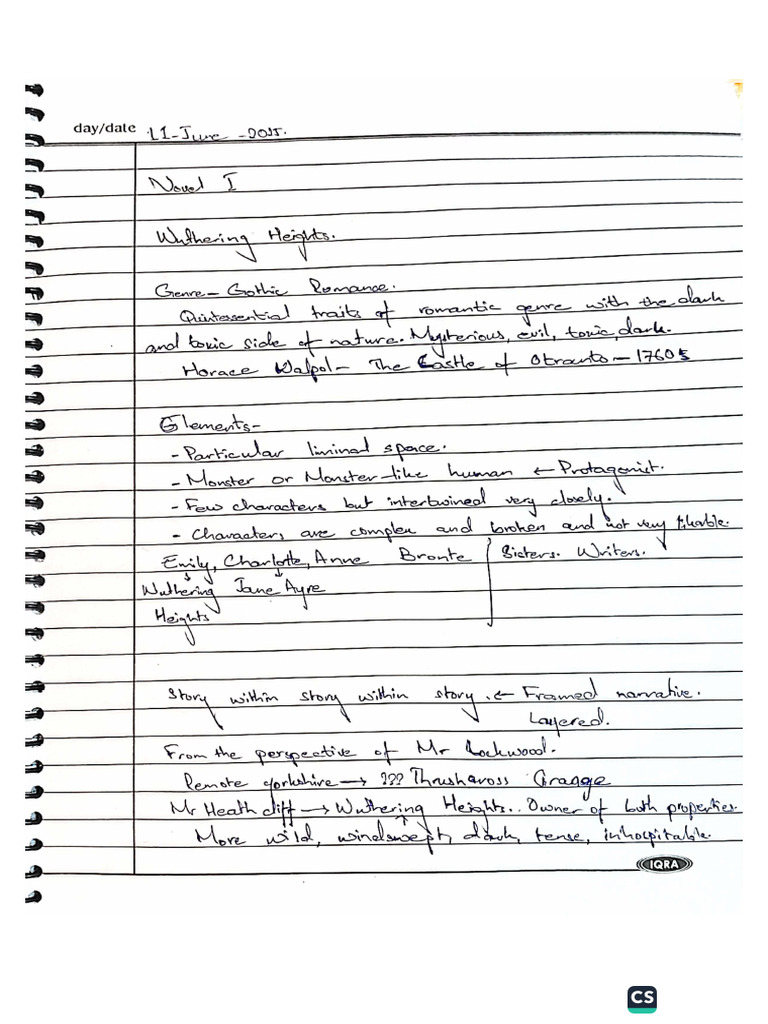 day/date 11-June-2025.
Novel I
Wuthering Heights.
Genre- Gothic Romance.
Quintessential traits of romantic genre with the dark
and toxic side of nature. Mysterious, evil, toxic, dark.
Horace Walpol- The Castle of Otranto - 1760s
Elements-
- Particular liminal space.
- Monster or Monster-like human ← Protagonist.
- Few characters but intertwined very closely.
- Characters are complex and broken and not very likable.
Emily, Charlotte, Anne Bronte Sisters. Writers.
Wuthering Jane Ayre
Heights
Story within story within story. ← Framed narrative.
Layered.
From the perspective of Mr Lockwood.
Remote Yorkshire → ??? Thrushcross Grange
Mr Heathcliff → Wuthering Heights.. Owner of both properties.
More wild, windswept, dark, tense, inhospitable.
IQRA
CS